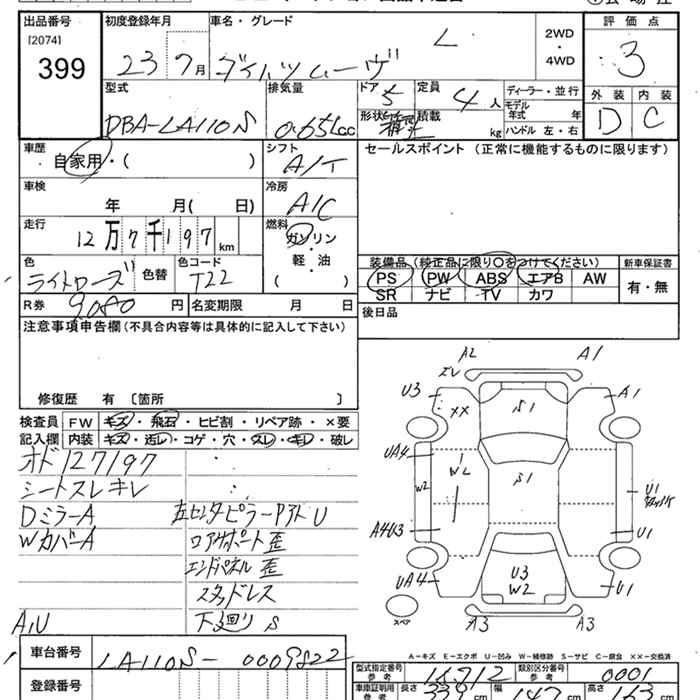 出品番号 初度登録年月 車名・グレード 評価点
[2074]
399
23 7月 ダイハツムーヴ L 2WD・4WD 3
型式 排気量 ドア 定員 ディーラー・並行 外装 内装
DBA-LA110S 0.65L cc 5 4人 モデル年式 年 D C
形状 積載 kg ハンドル 左・右
車歴 シフト セールスポイント (正常に機能するものに限ります)
自家用・( ) A/T
車検 冷房
年 月( 日) A/C
走行 燃料
12万7千197km ガソリン
軽・油
( )
色 色替 色コード 装備品 (純正品に限り〇をつけてください) 新車保証書
ライトローズ T22 PS PW ABS エアB AW 有・無
SR ナビ TV カワ
R券 9080円 名変期限 月 日 後日品
注意事項申告欄(不具合内容等は具体的に記入して下さい)
修復歴 有 〔箇所 〕
検査員 FW キズ・飛石・ヒビ割・リペア跡・×要
記入欄 内装 キズ・汚レ・コゲ・穴・スレ・キレ・破レ
オド127197
シートスレキレ
DミラーA 左センターピラーPアトU
WカバーA ロアサポート歪
エンドパネル歪
スタッドレス
A,U 下廻りS
A2 A1
エレ
U3 XX S1 A1
UA4 W2 S1 U1
W2
A4U3 U1
UA4 U3 U1
W2
スペア A3 A3
A-キズ E-エクボ U-凹み W-補修跡 S-サビ C-腐食 XX-交換済
車台番号 LA110S-0009822
登録番号
型式指定番号 参考 16912 類別区分番号 参考 0001
車庫証明用 参考 長さ 339cm 幅 147cm 高さ 163cm